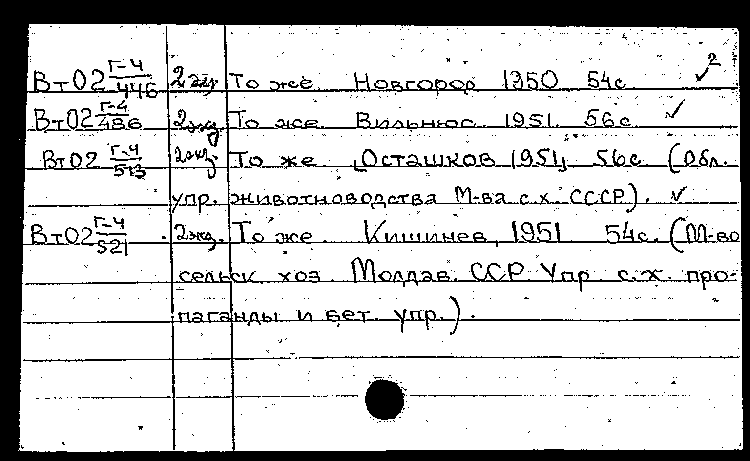 Вт02 Г-4/446 2 экз. То же. Новгород 1950 54с. ✓ 2
Вт02 Г-4/486 2 экз. То же. Вильнюс. 1951. 56с. ✓
Вт02 Г-4/513 2 экз. То же. [Осташков, 1951]. 56с. (Обл.
упр. животноводства М-ва с.х. СССР). ✓
Вт02 Г-4/521 2 экз. То же. Кишинев, 1951 54с. (М-во
сельск. хоз. Молдав. ССР. Упр. с.х. про-
паганды и вет. упр.).